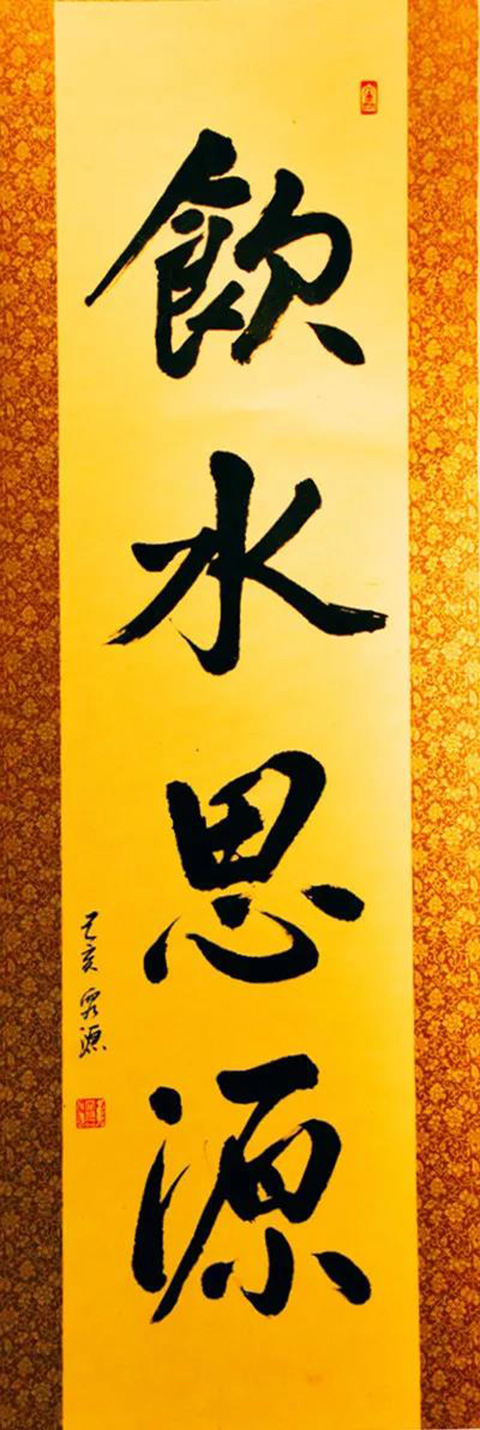 飲水思源
己亥